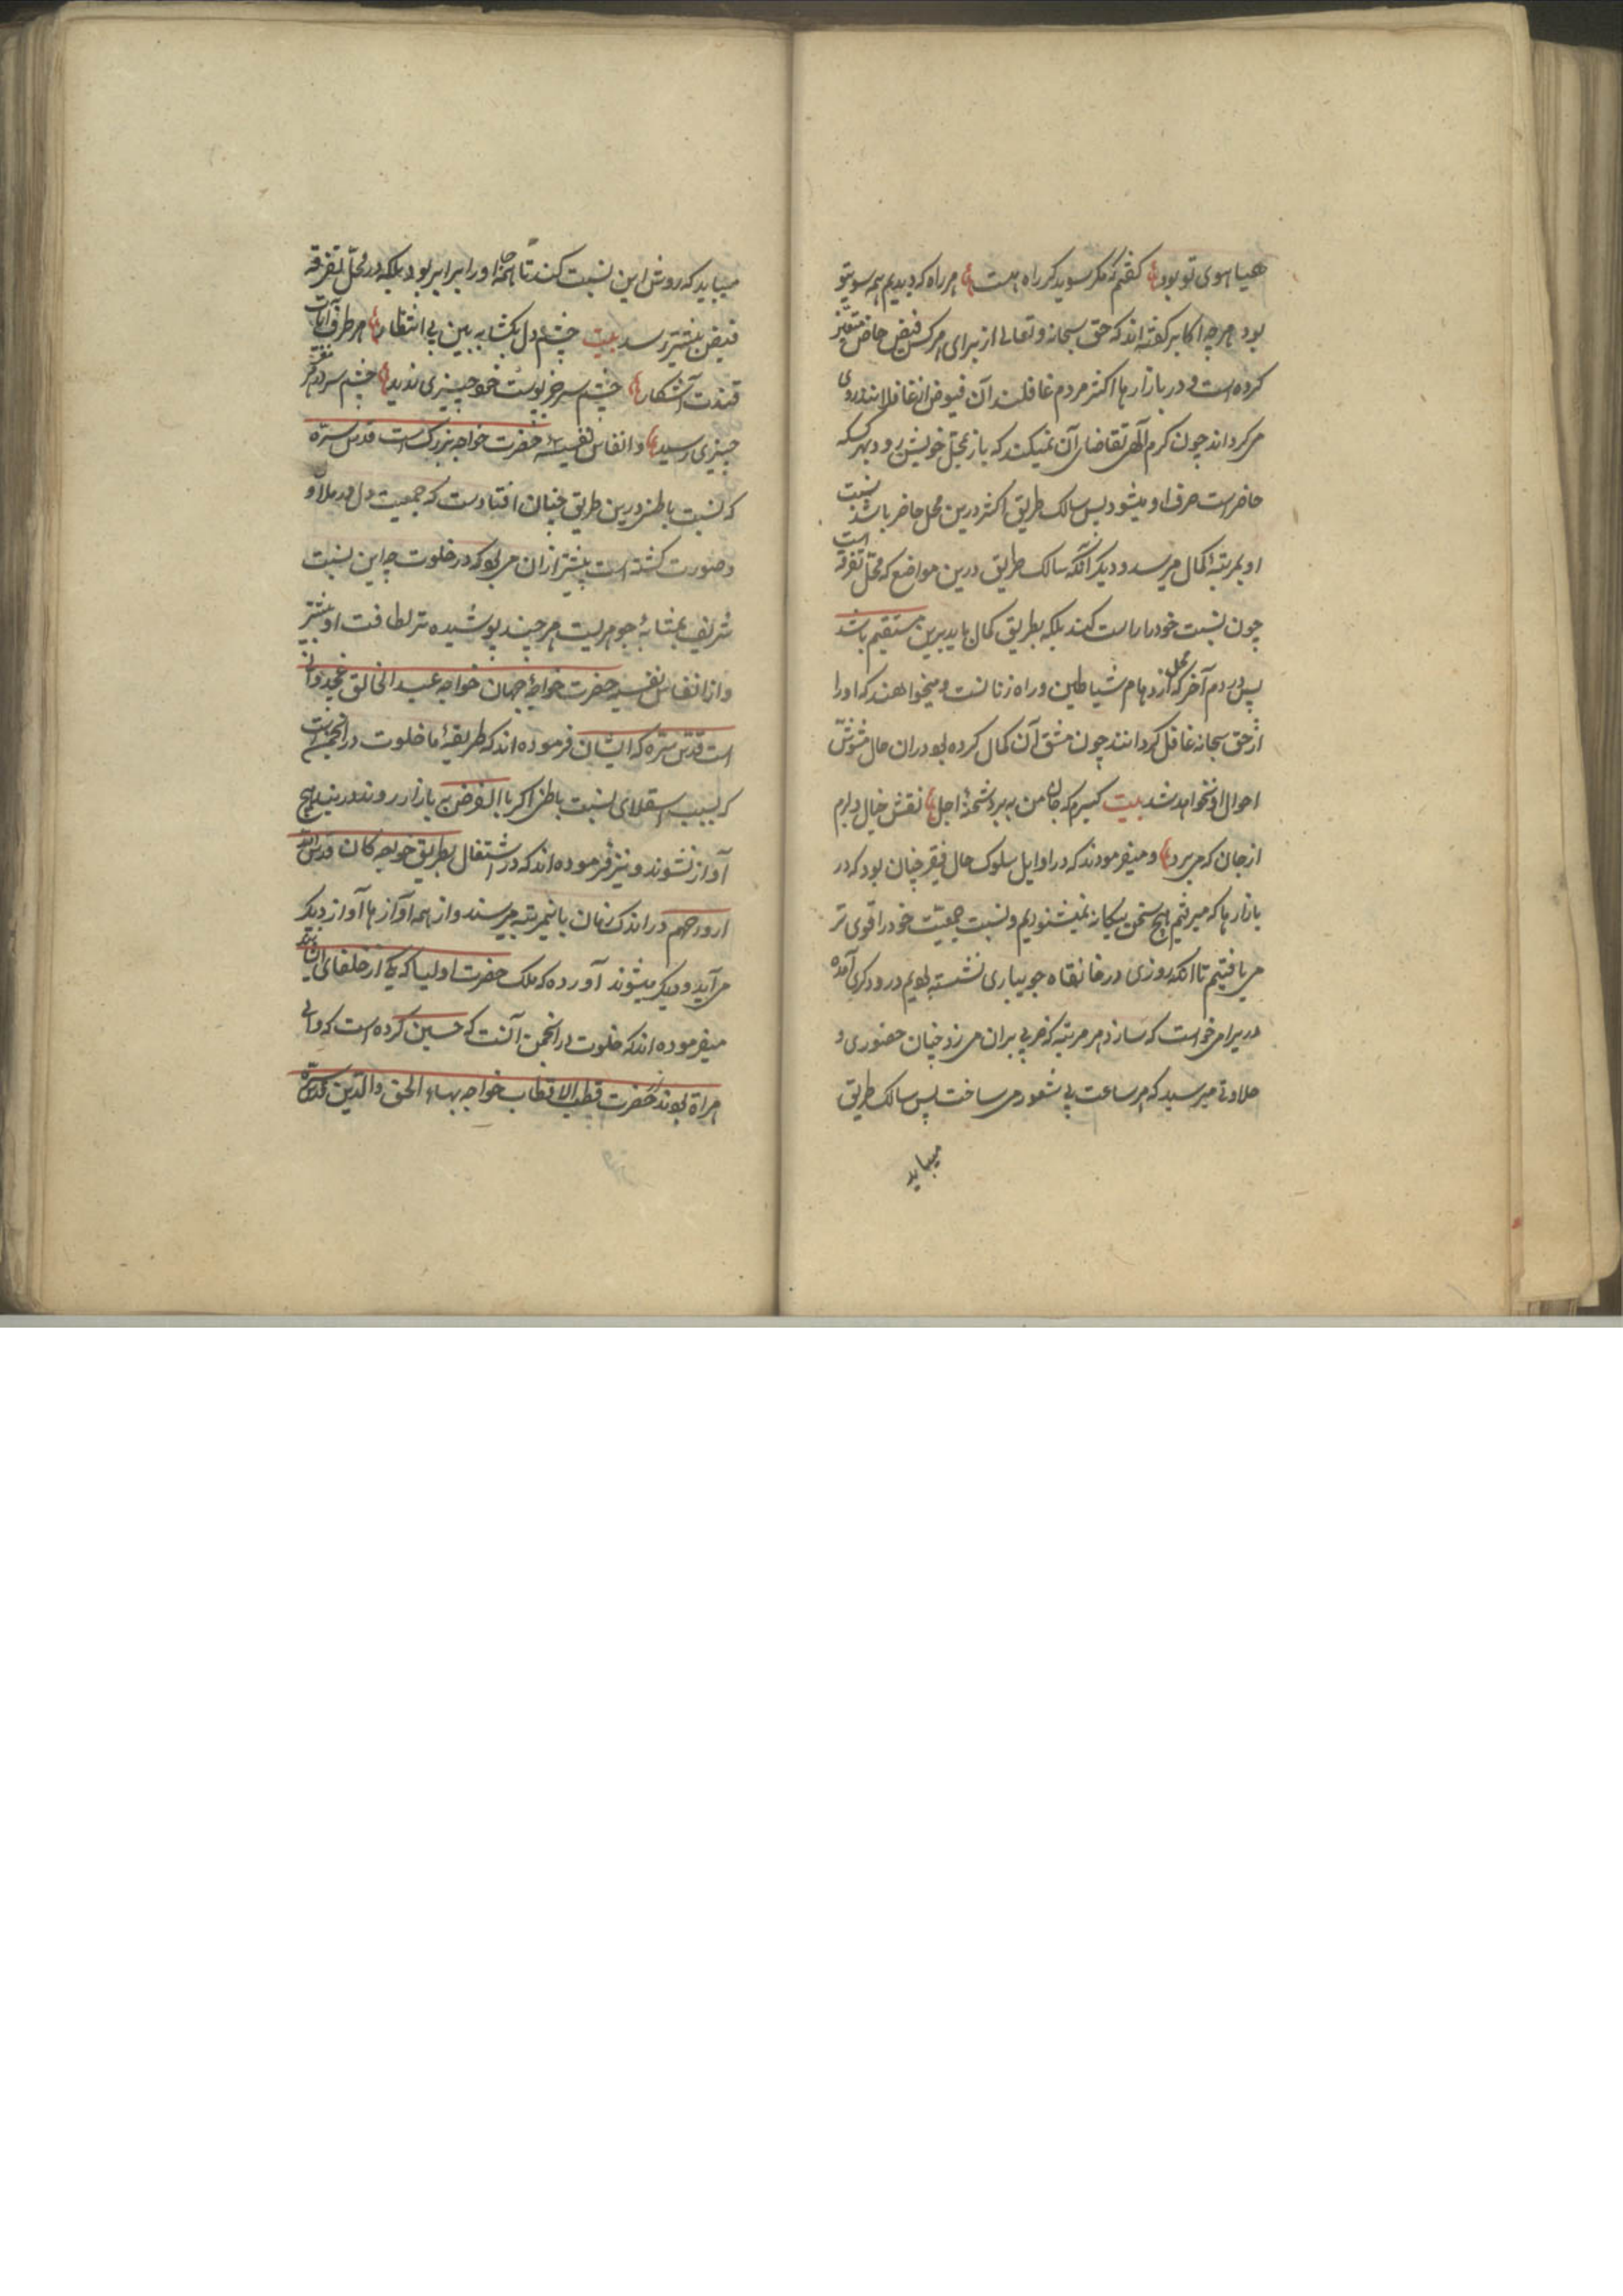 هیاهوی تو بود گفتم که مگر سوی دگر راه هست هر راه که دیدیم همه سوی تو
بود هر چه اکابر گفته اند که حق سبحانه و تعالی از برای هر کس فیض خاص متعین
کرده است و در بازارها اکثر مردم غافلند آن فیوض از غافلان روی
می گرداند چون کرم الهی تقاضای آن نمیکند که باز بمحل خویش رود بهر کسیکه
حاضر است صرف او میشود پس سالک طریق اکثر درین محل حاضر باشد نسبت
او بمرتبهٔ کمال میرسد و دیگر آنکه سالک طریق درین مواضع که محل تفرقه است
چون نسبت خود را راست کند بلکه بطریق کمال باید برین مستقیم باشد
پس در دم آخر که محل ازدهام شیاطین و راه زنانست و میخواهند که او را
از حق سبحانه غافل گردانند چون مشق آن کمال کرده بود در آن حال مشوش
احوال او نخواهد شد بیت گیرم که جان من به برد شحنهٔ اجل نقش خیال دارم
از جان که می برد و میفرمودند که در اوایل سلوک حال فقیر چنان بود که در
بازارها که میرفتم هیچ سخن بیگانه نمیشنودیم و نسبت جمعیت خود را قوی تر
می یافتیم تا آنکه روزی در خانقاه جویباری نشسته بودیم درودگری آمده
در را می خواست که سازد هر مرتبه که ضربی بران می زد چنان حضوری و
حلاوتی میرسید که هر ساعت بی شعور می ساخت پس سالک طریق
میباید
میباید که روش این نسبت کند تا همه جا او را برابر بود بلکه در محل تفرقه
فیض بیشتر رسد بیت چشم دل بکشا به بین بی انتظار هر طرف آیات
قدرت آشکار چشم سر جز پوست خود چیزی ندید چشم سر در مغز هر
چیزی رسید و انفاس نفیسهٔ حضرت خواجه بزرگ است قدس سره
که نسبت باطن درین طریق چنان افتاد است که جمعیت دل در ملا و
صورت کشته است بیشتر از آن می بود که در خلوت چه این نسبت
شریف بمثابهٔ جوهریست هر چند پوشیده تر لطافت او بیشتر
و از انفاس نفیسه حضرت خواجهٔ جهان خواجه عبد الخالق غجدوانی
است قدس سره که ایشان فرموده اند که طریقهٔ ما خلوت در انجمن است
که بسبب استیلای نسبت باطن اگر بالفرض به بازار روند در نیابد هیچ
آواز نشوند و نیز فرموده اند که در اشتغال بطریق خواجه کان قدس الله
ارواحهم در اندک زمان باین مرتبه میرسند و از همه آوازها آواز دیگر
می آید و دیگر میشوند آورده که ملک حضرت اولیا که یکی از خلفای ایشان
میفرموده اند که خلوت در انجمن آنست که حسین کرده است که والی
هراة بودند از حضرت قطب الاقطاب خواجه بهاء الحق والدین قدس سره